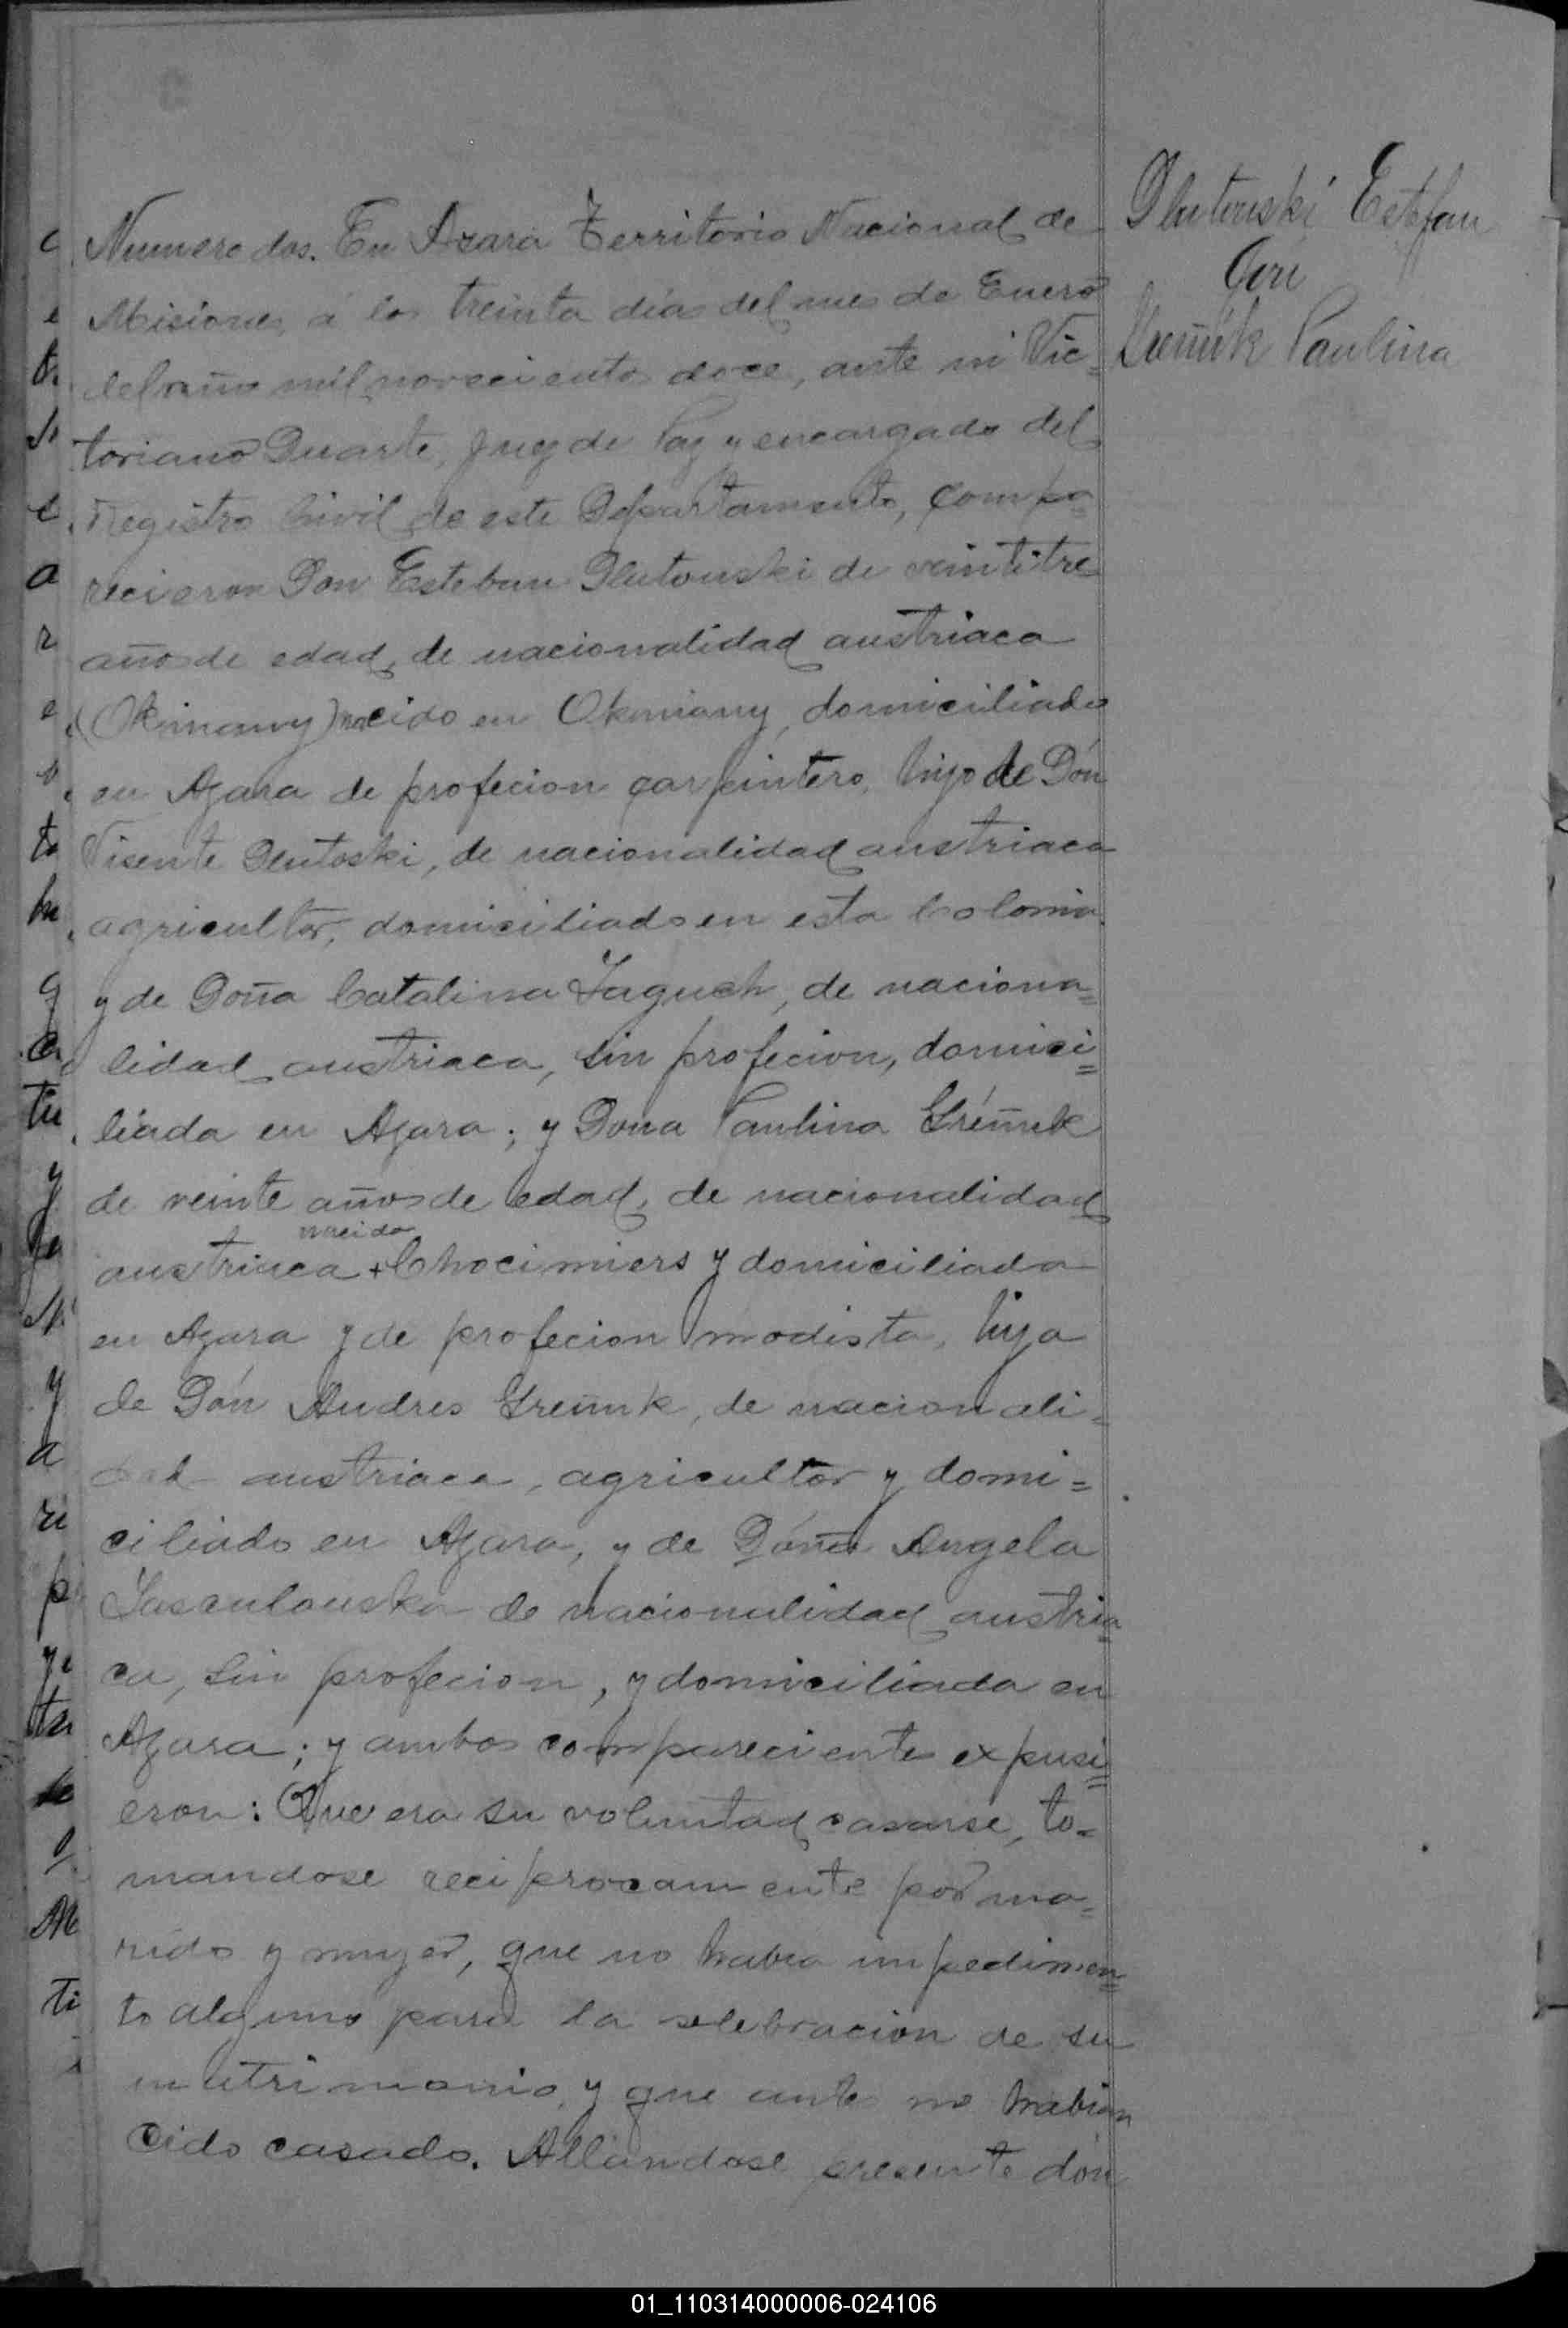 Plutouski Estefan
con
Greñuk Paulina
Numero dos. En Azara Territorio Nacional de
Misiones, á los treinta días del mes de Enero
del año mil novecientos doce, ante mi Vic=
toriano Duarte, Juez de Paz y encargado del
Registro Civil de este Departamento, compa=
recieron Don Esteban Plutouski de veintitre
años de edad, de nacionalidad austriaca
(Okinany) nacido en Okoniany, domiciliado
en Azara de profecion carpintero, hijo de Dón
Visente Plutoski, de nacionalidad austriaca
agricultor, domiciliado en esta Colonia
y de Doña Catalina Jaguch, de naciona=
lidad austriaca, sin profecion, domici=
liada en Azara; y Dona Paulina Gréñuk
de veinte años de edad, de nacionalidad
nacida
austriaca + Chocimiers y domiciliada
en Azara y de profecion modista, hija
de Dón Andres Greñuk, de nacionali=
dad austriaca, agricultor y domi=
ciliado en Azara, y de Dóña Angela
Jasculouska de nacionalidad austria=
ca, sin profecion, y domiciliada en
Azara; y ambos compareciente expusi=
eron: Que era su voluntad casarse, to=
mandose reciprocamente por ma=
rido y mujer, que no habia impedimen=
to alguno para la selebracion de su
matrimonio, y que antes no habian
cido casado. Allandose presente dón
01_110314000006-024106